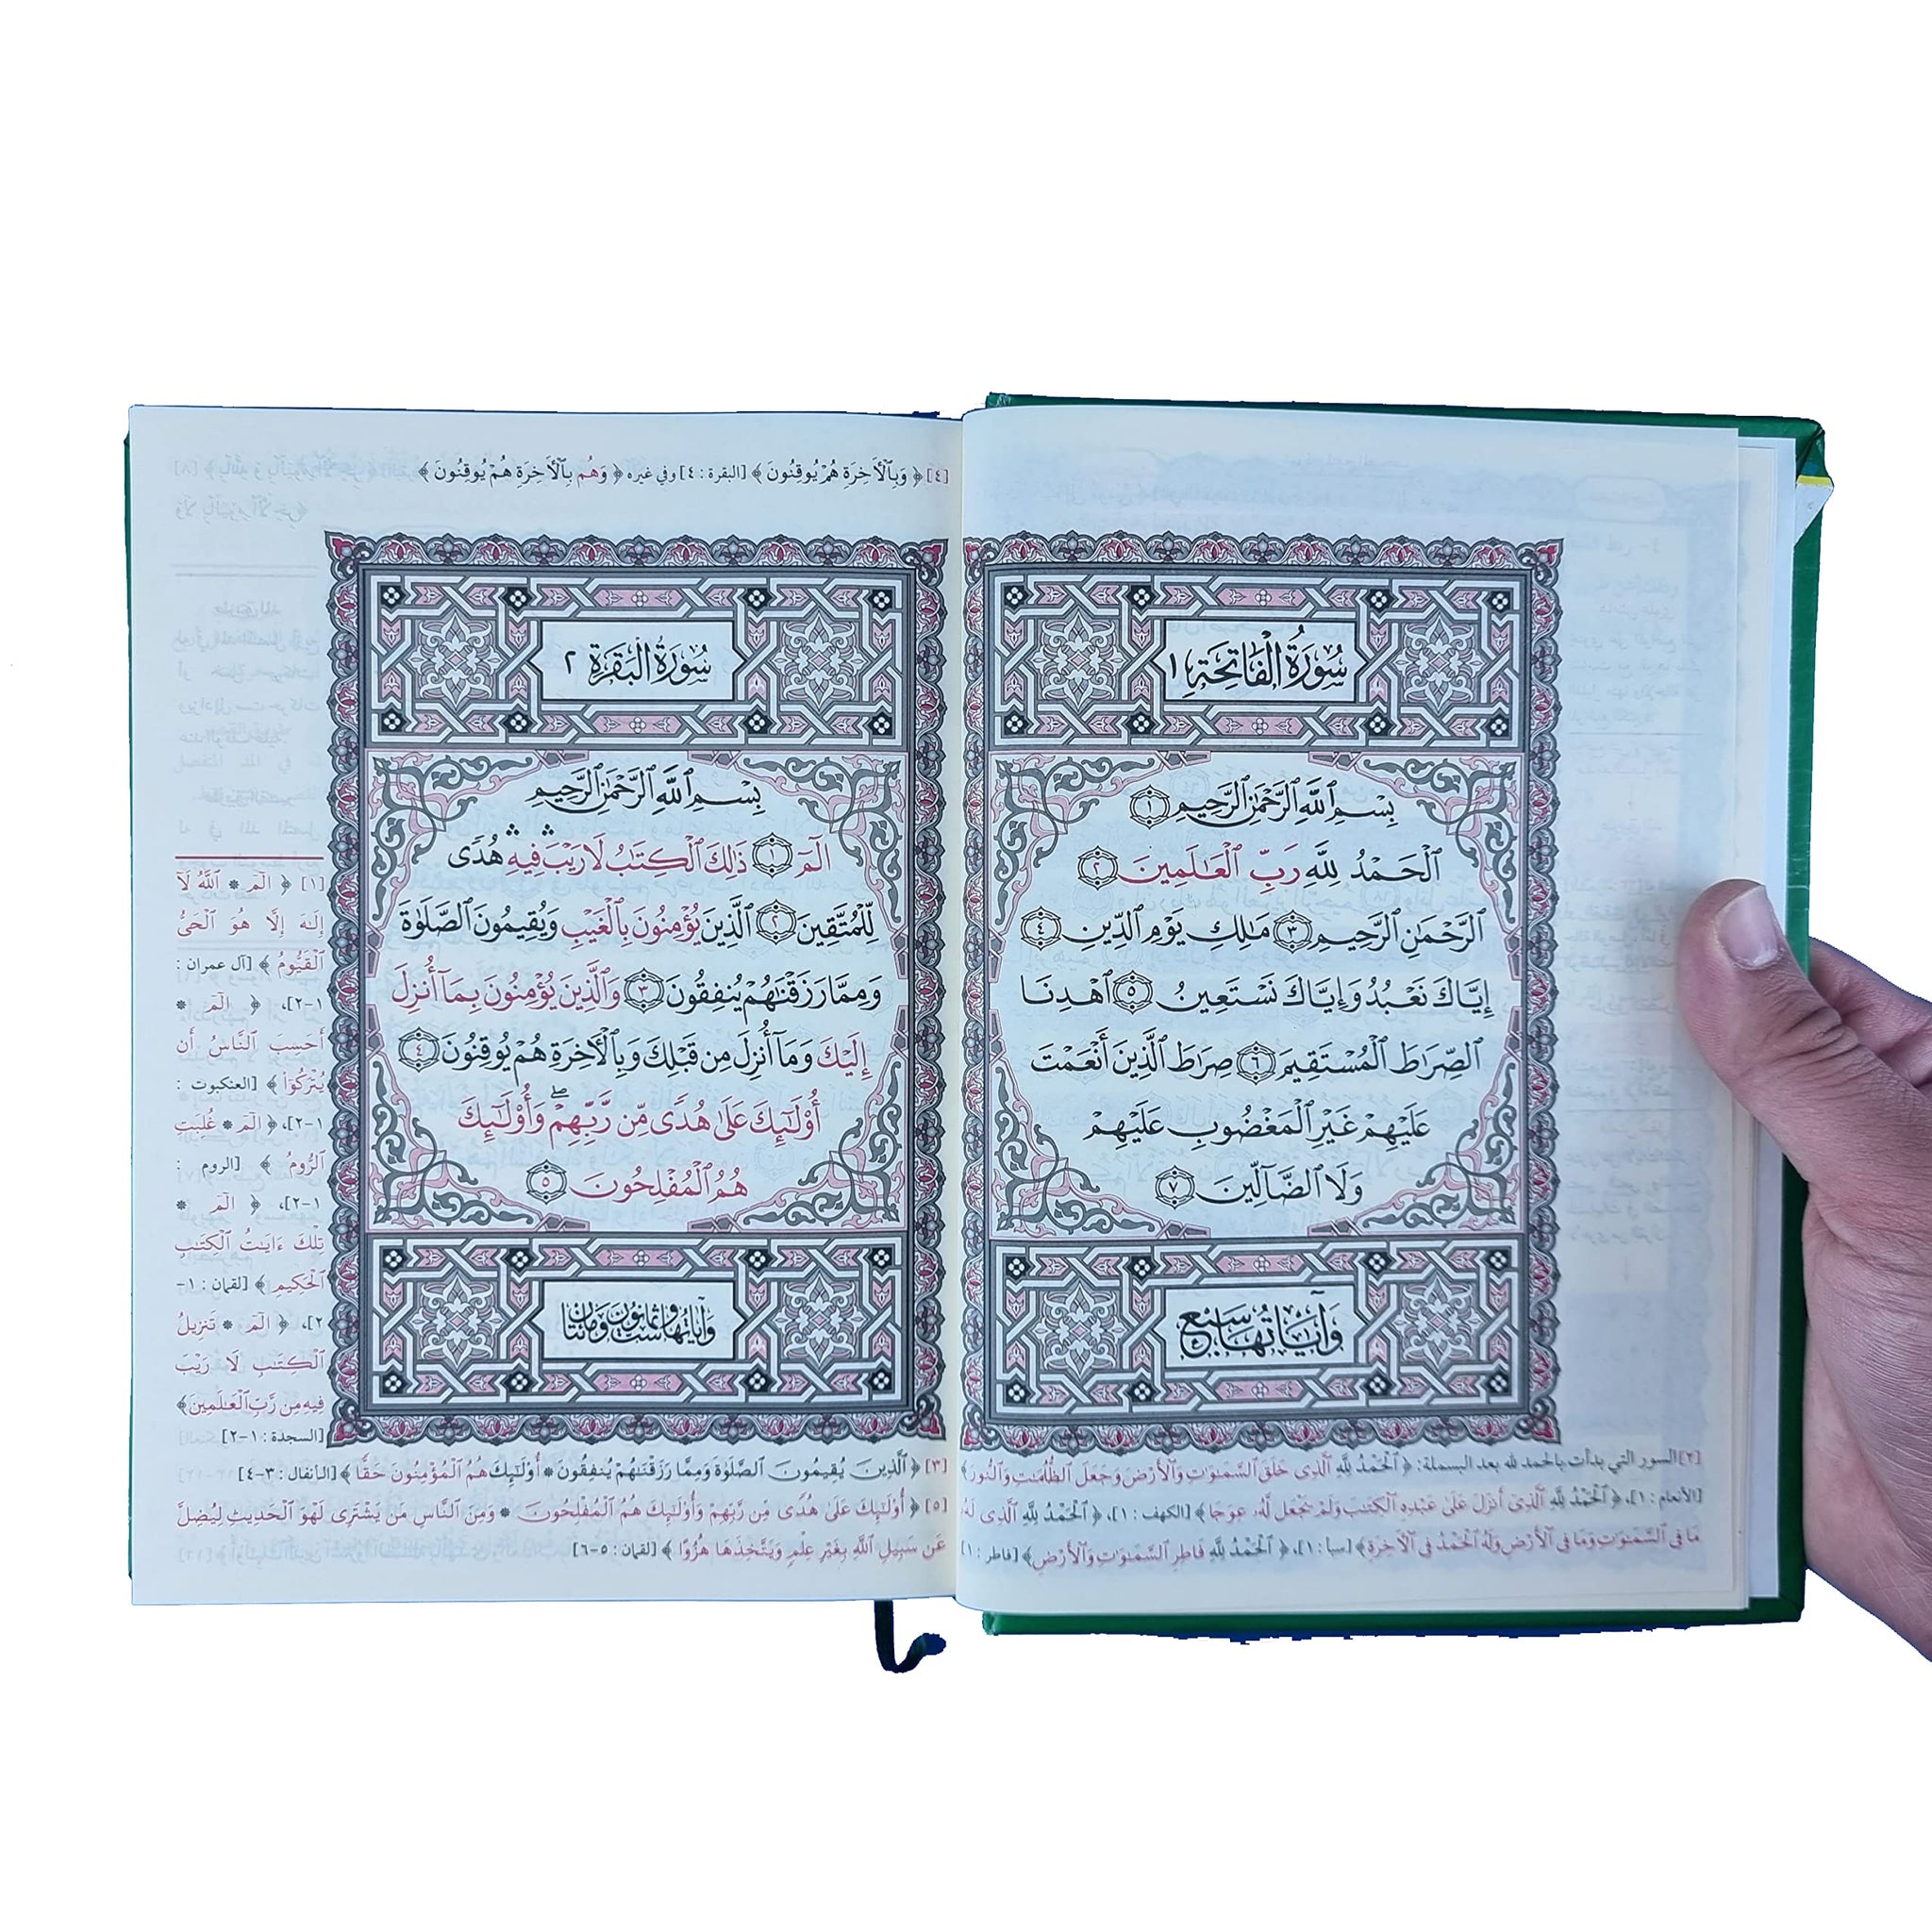 سُورَةُ الْفَاتِحَةِ ١
بِسْمِ ٱللَّهِ ٱلرَّحْمَٰنِ ٱلرَّحِيمِ ١
ٱلْحَمْدُ لِلَّهِ رَبِّ ٱلْعَٰلَمِينَ ٢
ٱلرَّحْمَٰنِ ٱلرَّحِيمِ ٣ مَٰلِكِ يَوْمِ ٱلدِّينِ ٤
إِيَّاكَ نَعْبُدُ وَإِيَّاكَ نَسْتَعِينُ ٥ ٱهْدِنَا
ٱلصِّرَٰطَ ٱلْمُسْتَقِيمَ ٦ صِرَٰطَ ٱلَّذِينَ أَنْعَمْتَ
عَلَيْهِمْ غَيْرِ ٱلْمَغْضُوبِ عَلَيْهِمْ
وَلَا ٱلضَّآلِّينَ ٧
وَآيَاتُهَا سَبْعٌ
[٢] السور التي بدأت بالحمد لله بعد البسملة: ﴿ ٱلْحَمْدُ لِلَّهِ ٱلَّذِى خَلَقَ ٱلسَّمَٰوَٰتِ وَٱلْأَرْضَ وَجَعَلَ ٱلظُّلُمَٰتِ وَٱلنُّورَ﴾
[الأنعام : ١]، ﴿ ٱلْحَمْدُ لِلَّهِ ٱلَّذِىٓ أَنزَلَ عَلَىٰ عَبْدِهِ ٱلْكِتَٰبَ وَلَمْ يَجْعَل لَّهُۥ عِوَجَا﴾ [الكهف : ١]، ﴿ ٱلْحَمْدُ لِلَّهِ ٱلَّذِى لَهُۥ
مَا فِى ٱلسَّمَٰوَٰتِ وَمَا فِى ٱلْأَرْضِ وَلَهُ ٱلْحَمْدُ فِى ٱلْأَخِرَةِ﴾ [سبأ : ١]، ﴿ ٱلْحَمْدُ لِلَّهِ فَاطِرِ ٱلسَّمَٰوَٰتِ وَٱلْأَرْضِ﴾ [فاطر : ١]
[٤] ﴿ وَبِٱلْأَخِرَةِ هُمْ يُوقِنُونَ ﴾ [البقرة : ٤] وفي غيره ﴿ وَهُم بِٱلْأَخِرَةِ هُمْ يُوقِنُونَ ﴾
سُورَةُ البَقَرَةِ ٢
بِسْمِ ٱللَّهِ ٱلرَّحْمَٰنِ ٱلرَّحِيمِ
الٓمٓ ١ ذَٰلِكَ ٱلْكِتَٰبُ لَا رَيْبَ ۛ فِيهِ ۛ هُدًى
لِّلْمُتَّقِينَ ٢ ٱلَّذِينَ يُؤْمِنُونَ بِٱلْغَيْبِ وَيُقِيمُونَ ٱلصَّلَوٰةَ
وَمِمَّا رَزَقْنَٰهُمْ يُنفِقُونَ ٣ وَٱلَّذِينَ يُؤْمِنُونَ بِمَآ أُنزِلَ
إِلَيْكَ وَمَآ أُنزِلَ مِن قَبْلِكَ وَبِٱلْأَخِرَةِ هُمْ يُوقِنُونَ ٤
أُو۟لَٰٓئِكَ عَلَىٰ هُدًى مِّن رَّبِّهِمْ ۖ وَأُو۟لَٰٓئِكَ
هُمُ ٱلْمُفْلِحُونَ ٥
وَآيَاتُهَا سِتٌّ وَثَمَانُونَ وَمِائَتَانِ
[١] ﴿ الٓمٓ * ٱللَّهُ لَآ
إِلَٰهَ إِلَّا هُوَ ٱلْحَىُّ
ٱلْقَيُّومُ ﴾ [آل عمران :
١-٢]، ﴿ الٓمٓ *
أَحَسِبَ ٱلنَّاسُ أَن
يُتْرَكُوٓا۟ ﴾ [العنكبوت :
١-٢]، ﴿ الٓمٓ * غُلِبَتِ
ٱلرُّومُ ﴾ [الروم :
١-٢]، ﴿ الٓمٓ *
تِلْكَ ءَايَٰتُ ٱلْكِتَٰبِ
ٱلْحَكِيمِ ﴾ [لقمان : ١-
٢]، ﴿ الٓمٓ * تَنزِيلُ
ٱلْكِتَٰبِ لَا رَيْبَ
فِيهِ مِن رَّبِّ ٱلْعَٰلَمِينَ﴾
[السجدة : ١-٢]
[٣] ﴿ ٱلَّذِينَ يُقِيمُونَ ٱلصَّلَوٰةَ وَمِمَّا رَزَقْنَٰهُمْ يُنفِقُونَ * أُو۟لَٰٓئِكَ هُمُ ٱلْمُؤْمِنُونَ حَقًّا ﴾ [الأنفال : ٣-٤]
[٥] ﴿ أُو۟لَٰٓئِكَ عَلَىٰ هُدًى مِّن رَّبِّهِمْ وَأُو۟لَٰٓئِكَ هُمُ ٱلْمُفْلِحُونَ * وَمِنَ ٱلنَّاسِ مَن يَشْتَرِى لَهْوَ ٱلْحَدِيثِ لِيُضِلَّ
عَن سَبِيلِ ٱللَّهِ بِغَيْرِ عِلْمٍ وَيَتَّخِذَهَا هُزُوًا ﴾ [لقمان : ٥-٦]